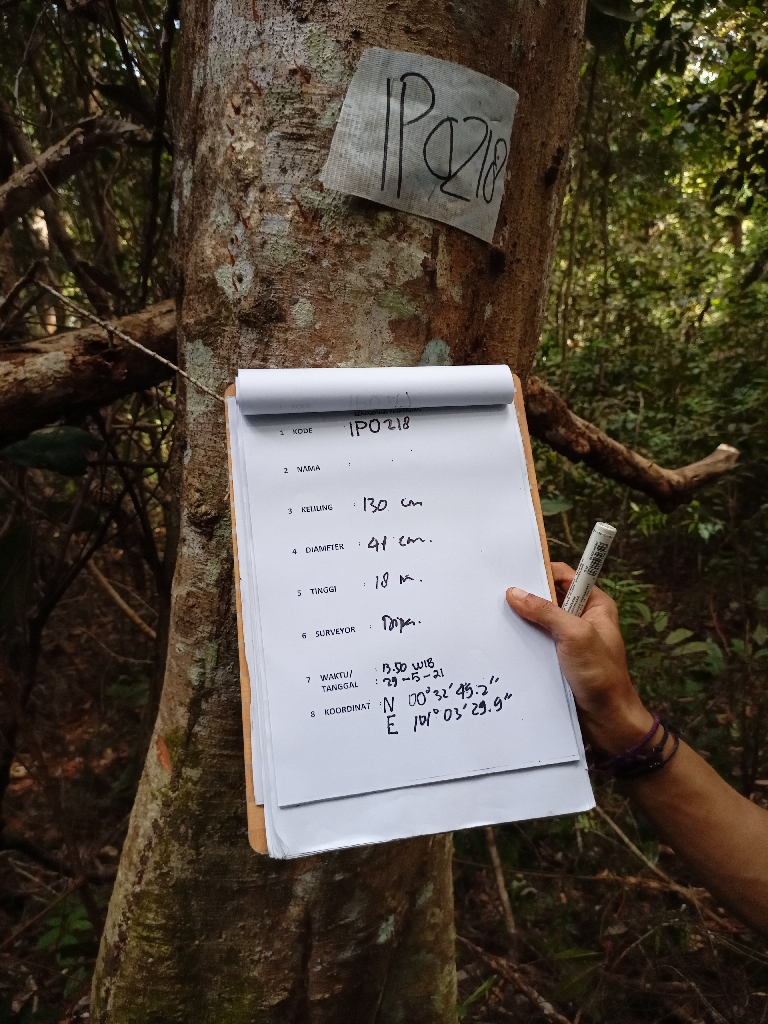 IP0218
1 KODE : IP0218
2 NAMA :
3 KELILING : 130 cm
4 DIAMETER : 41 cm.
5 TINGGI : 18 m.
6 SURVEYOR :
7 WAKTU/ : 13.50 WIB
TANGGAL : 29-5-21
8 KOORDINAT : N 00° 32' 45.2"
E 101° 03' 29.9"